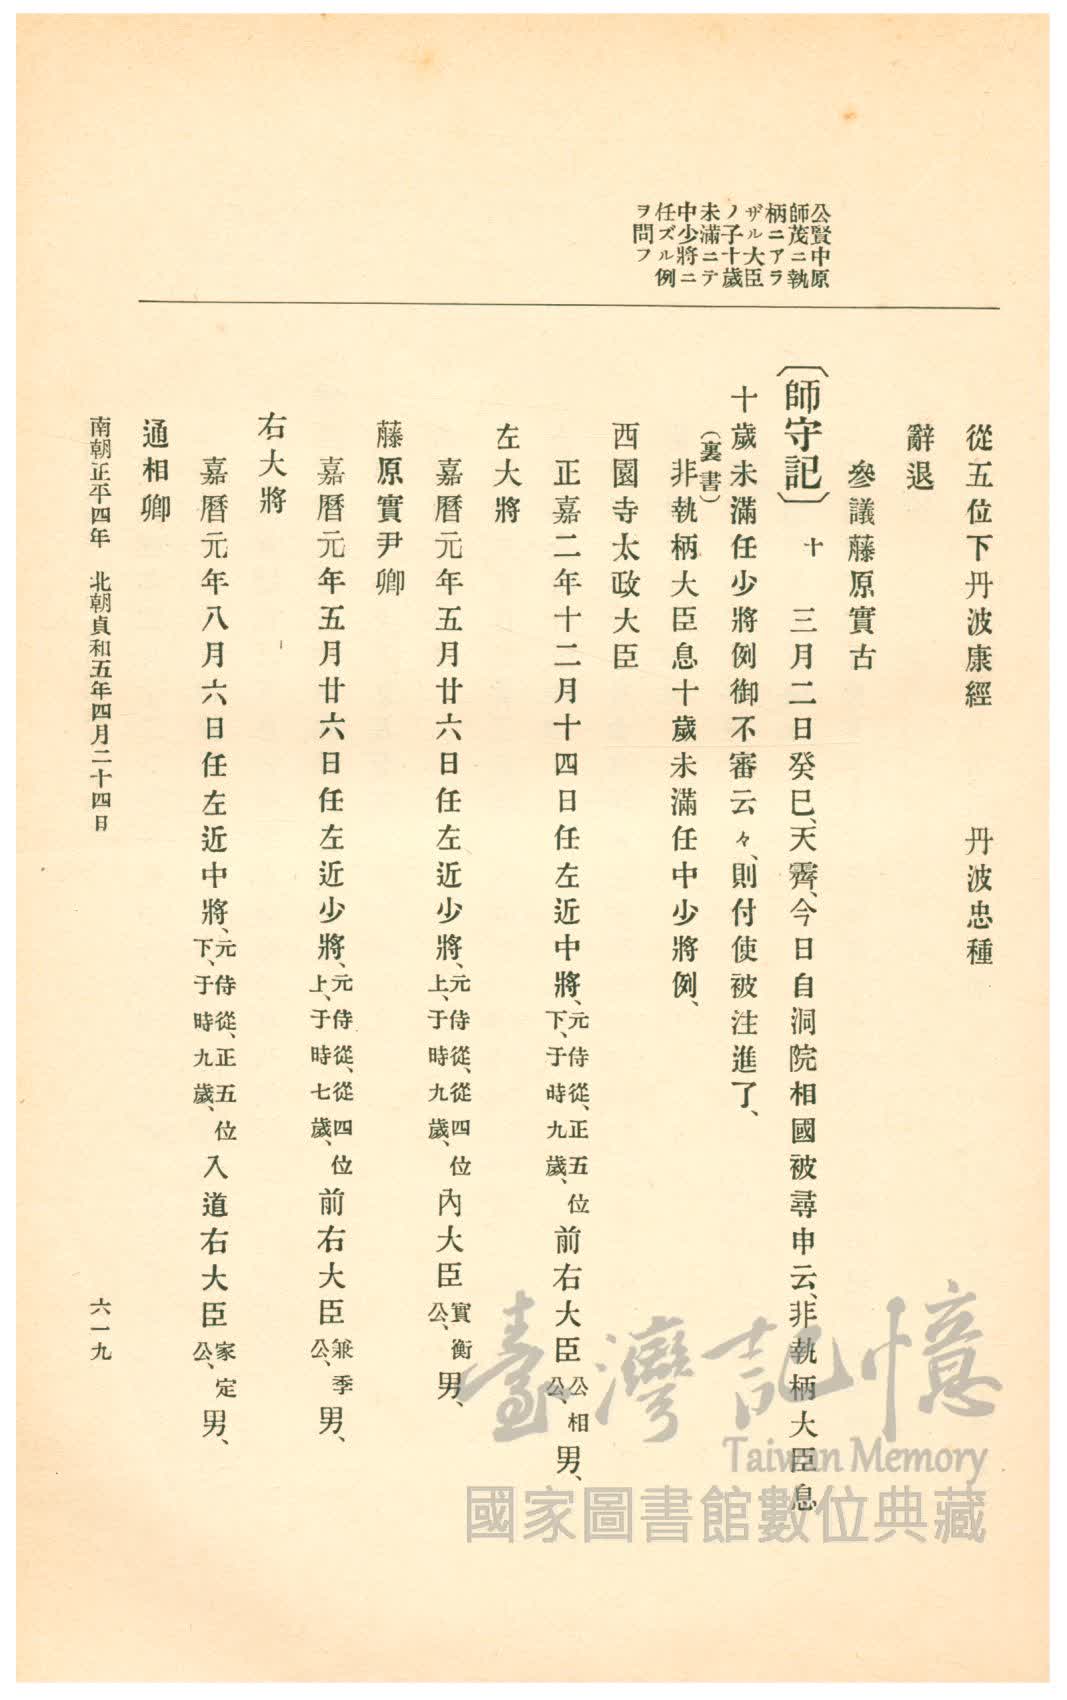 公賢中原
師茂ニ執
柄ニアラ
ザル大臣
ノ子十歲
未滿ニテ
中少將ニ
任ズル例
ヲ問フ
從五位下丹波康經　丹波忠種
辭退
參議藤原實古
〔師守記〕十　三月二日癸巳、天霽、今日自洞院相國被尋申云、非執柄大臣息
十歲未滿任少將例御不審云々、則付使被注進了、
（裏書）
非執柄大臣息十歲未滿任中少將例、
西園寺太政大臣
正嘉二年十二月十四日任左近中將、元侍從、正五位下、于時九歲、前右大臣公相公、男、
左大將
嘉曆元年五月廿六日任左近少將、元侍從、從四位上、于時九歲、內大臣實衡公、男、
藤原實尹卿
嘉曆元年五月廿六日任左近少將、元侍從、從四位上、于時七歲、前右大臣兼季公、男、
右大將
嘉曆元年八月六日任左近中將、元侍從、正五位下、于時九歲、入道右大臣家定公、男、
通相卿
南朝正平四年　北朝貞和五年四月二十四日
六一九
臺灣記憶
Taiwan Memory
國家圖書館數位典藏